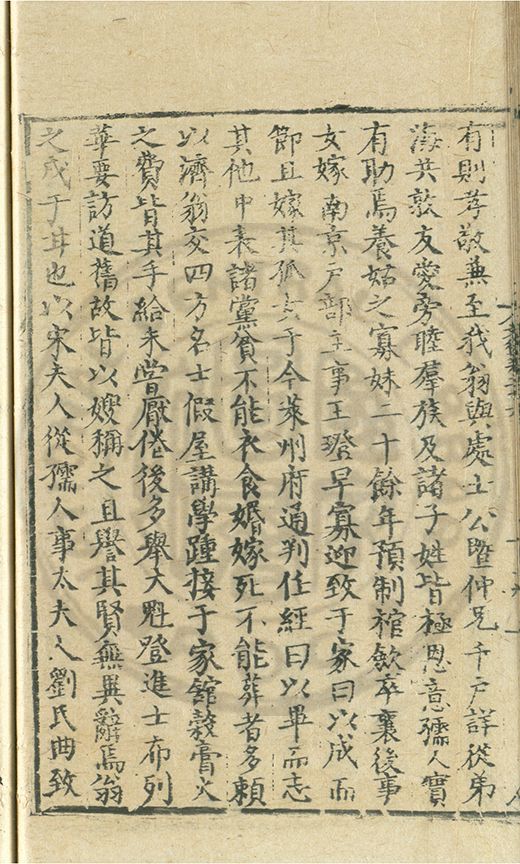 有則孝敬兼至我翁與處士公暨仲兄千戶詳從弟
海共敦友愛旁睦羣族及諸子姓皆極恩意孺人實
有助焉養姑之寡妹二十餘年預制棺斂卒襄後事
女嫁南京戶部主事王璒早寡迎致于家曰以成而
節且嫁其孤女于今萊州府通判任經曰以畢而志
其他中表諸黨貧不能衣食婚嫁死不能葬者多賴
以濟翁交四方名士假屋講學踵接于家館穀膏火
之費皆其手給未嘗厭倦後多舉大魁登進士布列
華要訪道舊故皆以嫂稱之且譽其賢無異辭焉翁
之戍于耳也以宋夫人從孺人事太夫人劉氏曲致